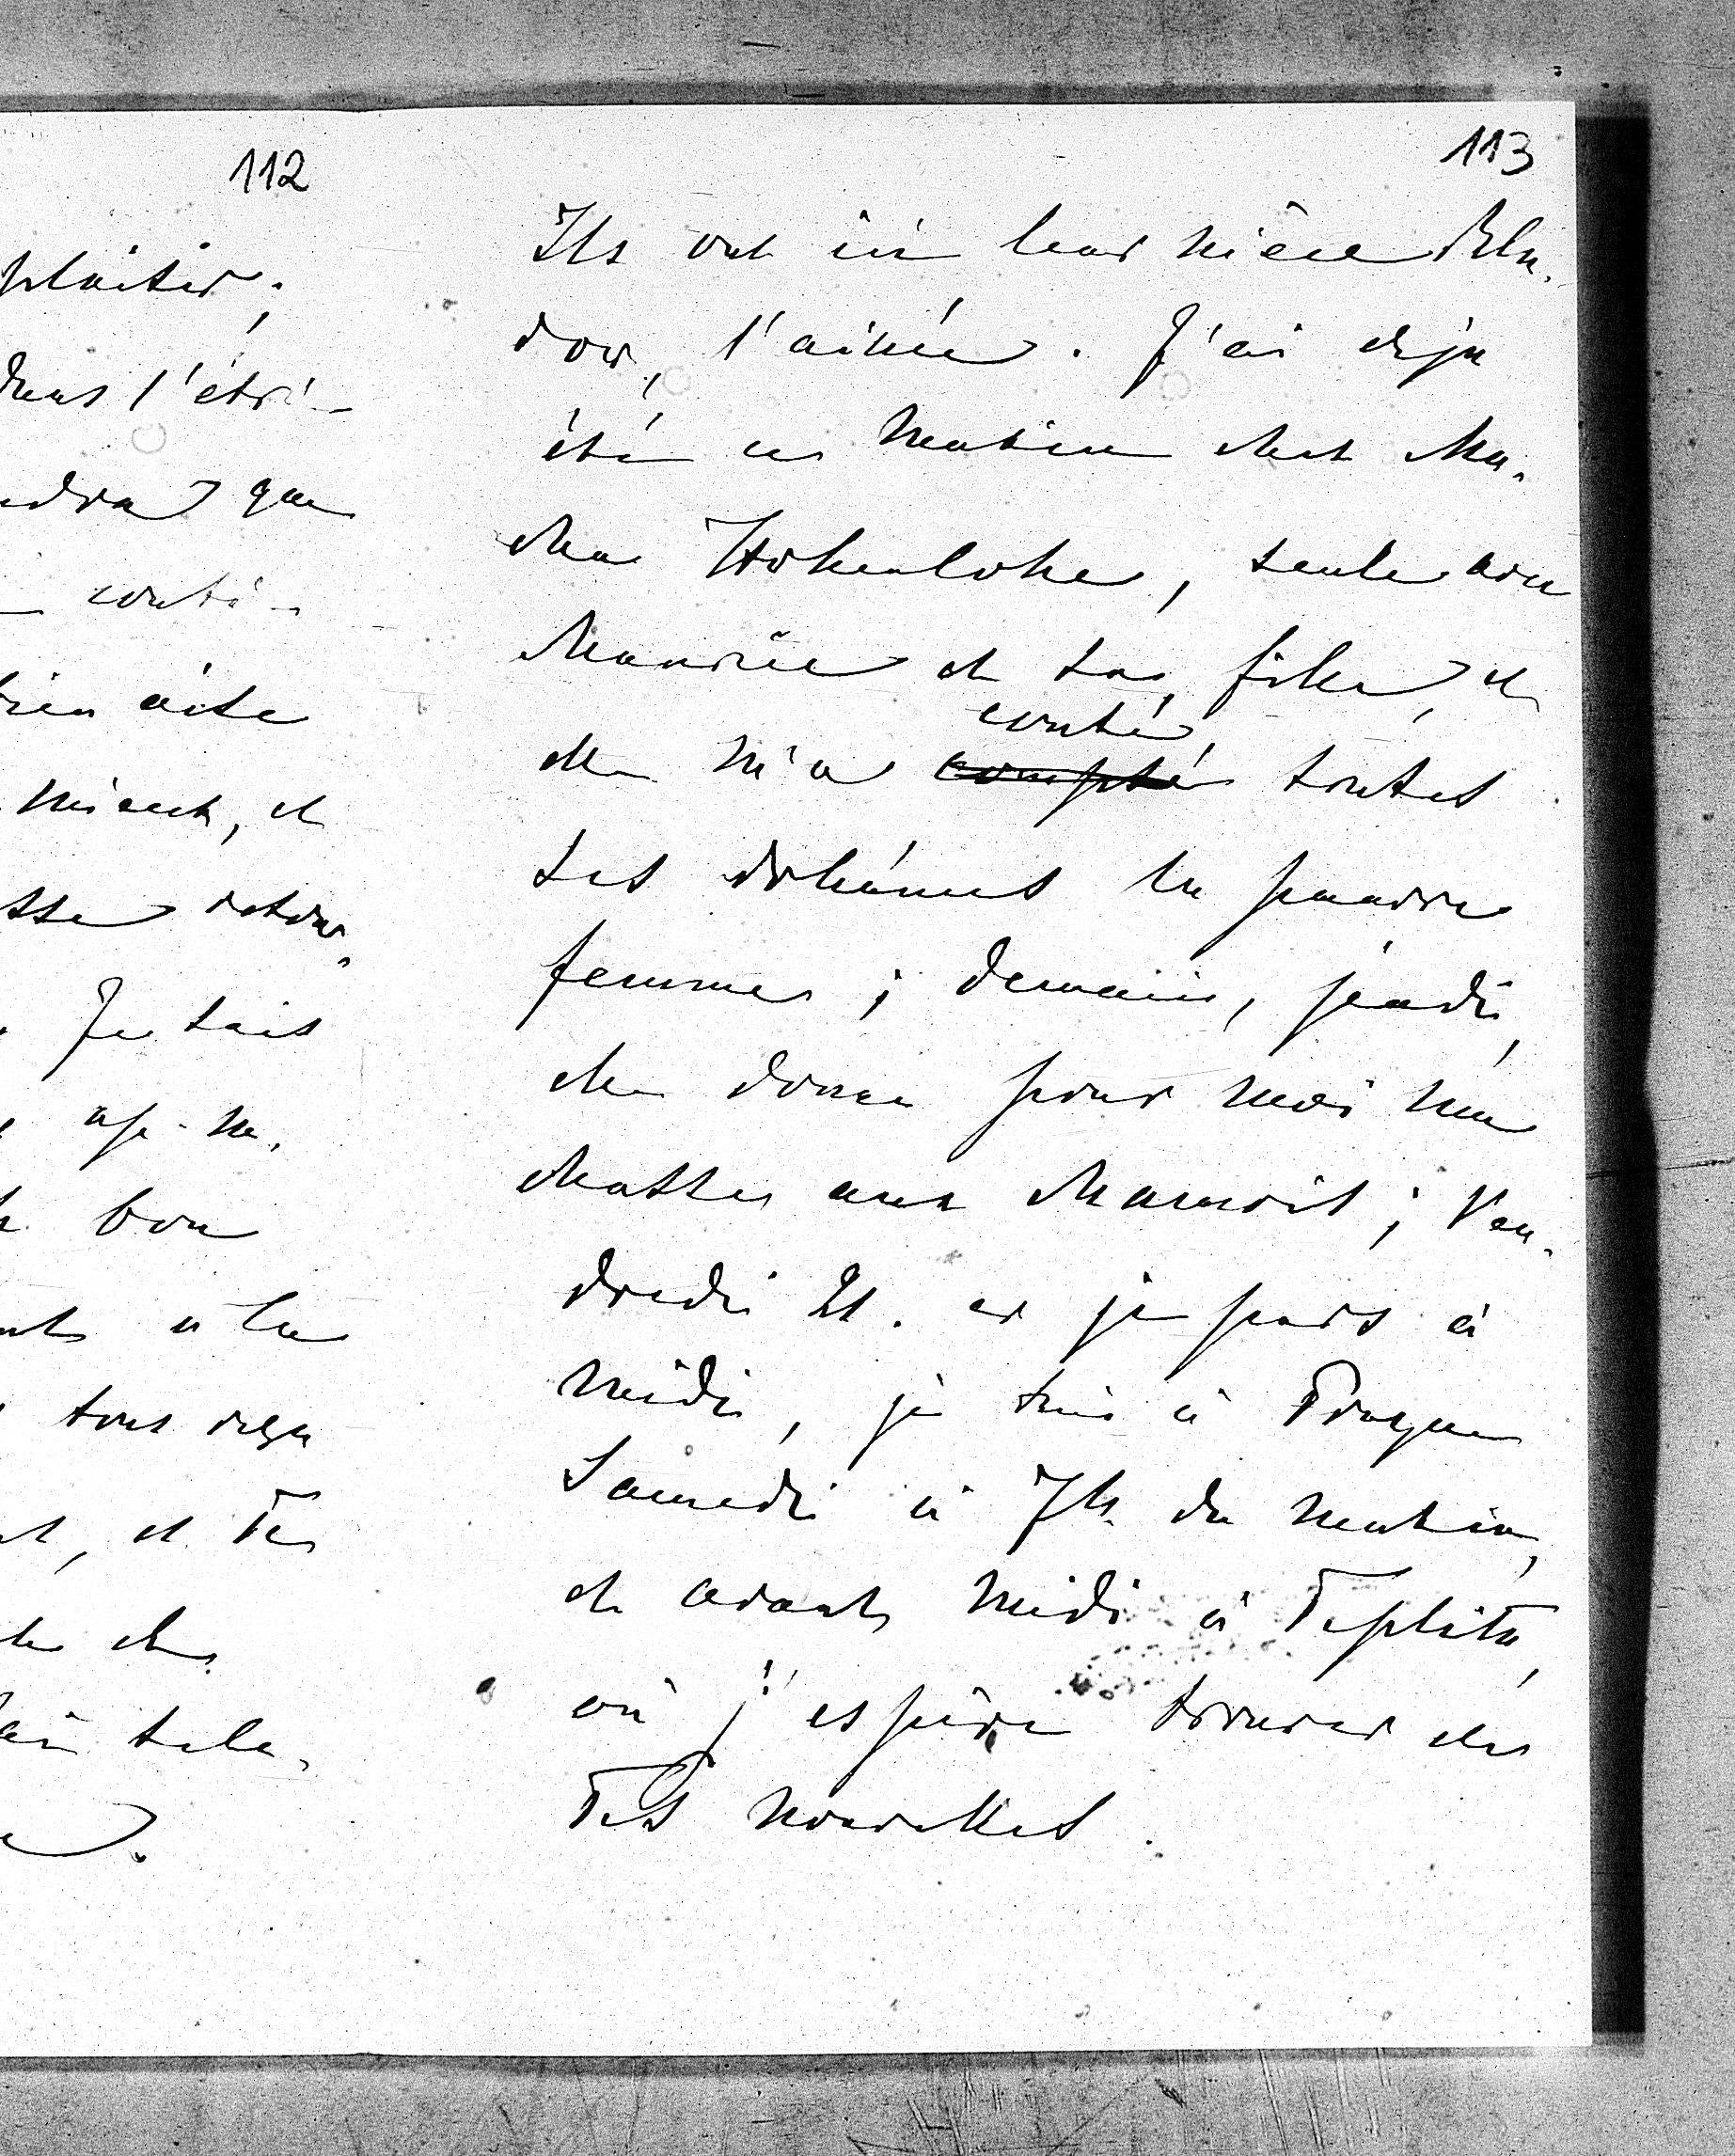 112
plaisir;
dans l'étri-
que
conti-
bien aise
mieux, et
sse retour-
. Je sais
ap. m.
bon
a la
tous déjà
, et Te
tele-
113
Ils ont ici leur nièce Blu-
dow, l'aînée. J'ai déja
été ce matin chez Ma-
dme Hohenlohe, seule avec
Maurice et sa fille, et
elle m'a compté conté toutes
ses drôlânes la pauvre
femme; demain, jeudi,
elle donne pour moi une
chasse aux chamois; Ven-
dredi 21. er je pars à
midi, je suis à Prague
Samedi à 7h. du matin,
et avant midi à Teplitz,
où j'espère trouver de
Tes nouvelles.